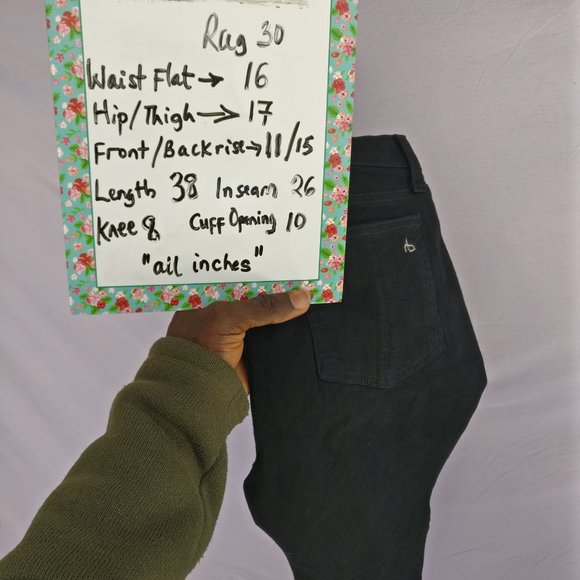 Rag 30
Waist Flat → 16
Hip/Thigh → 17
Front/Backrise → 11/15
Length 38 Inseam 26
Knee 8 Cuff Opening 10
"all inches"
rb